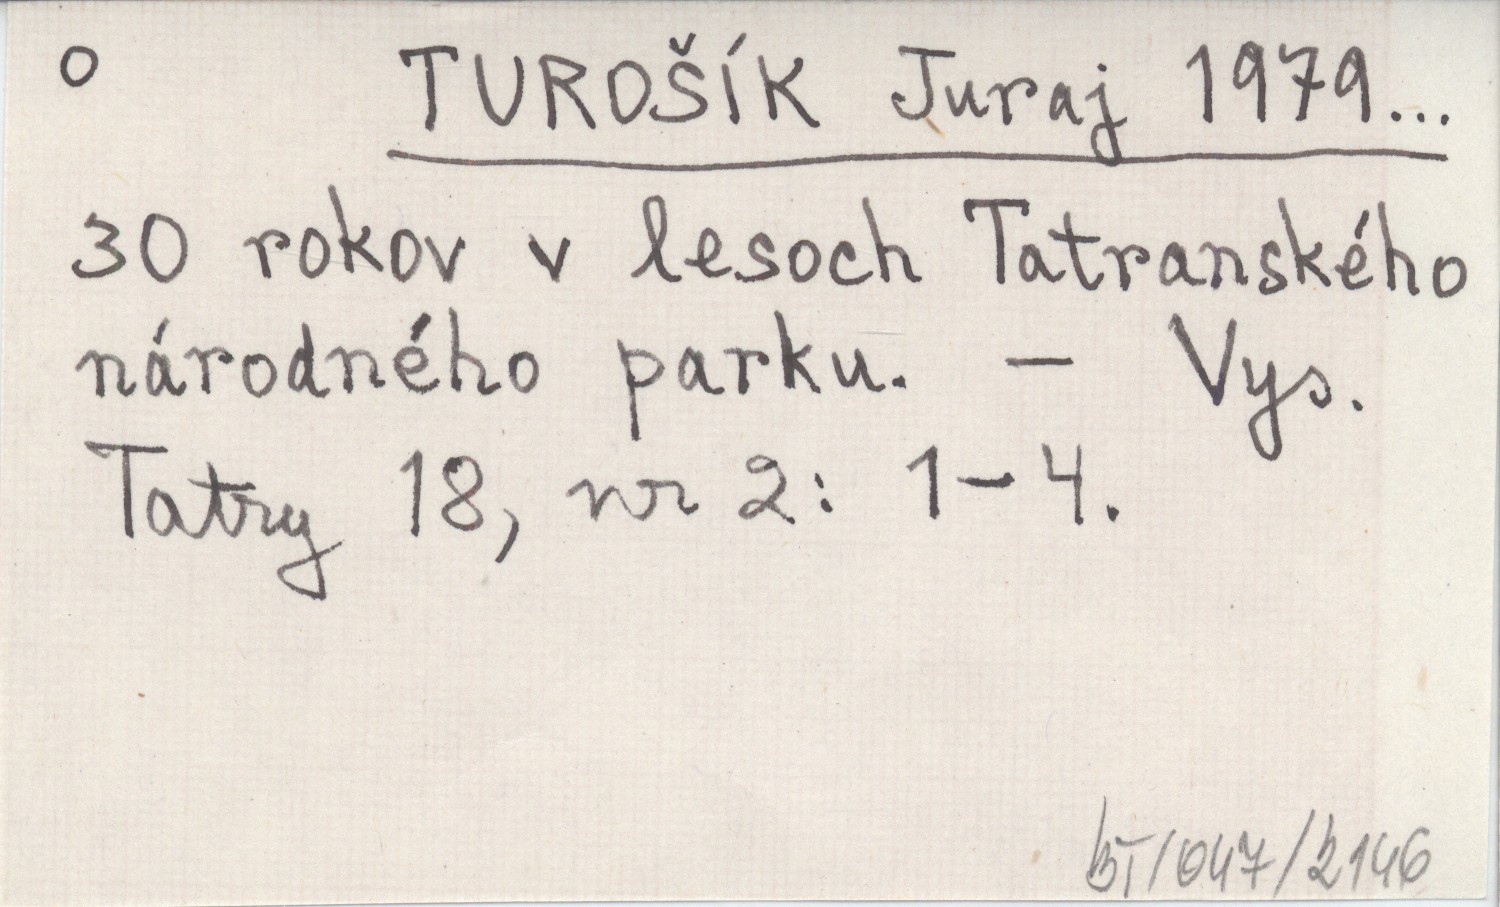 o TUROŠÍK Juraj 1979...
30 rokov v lesoch Tatranského
národného parku. – Vys.
Tatry 18, nr 2: 1–4.
BT/047/2146